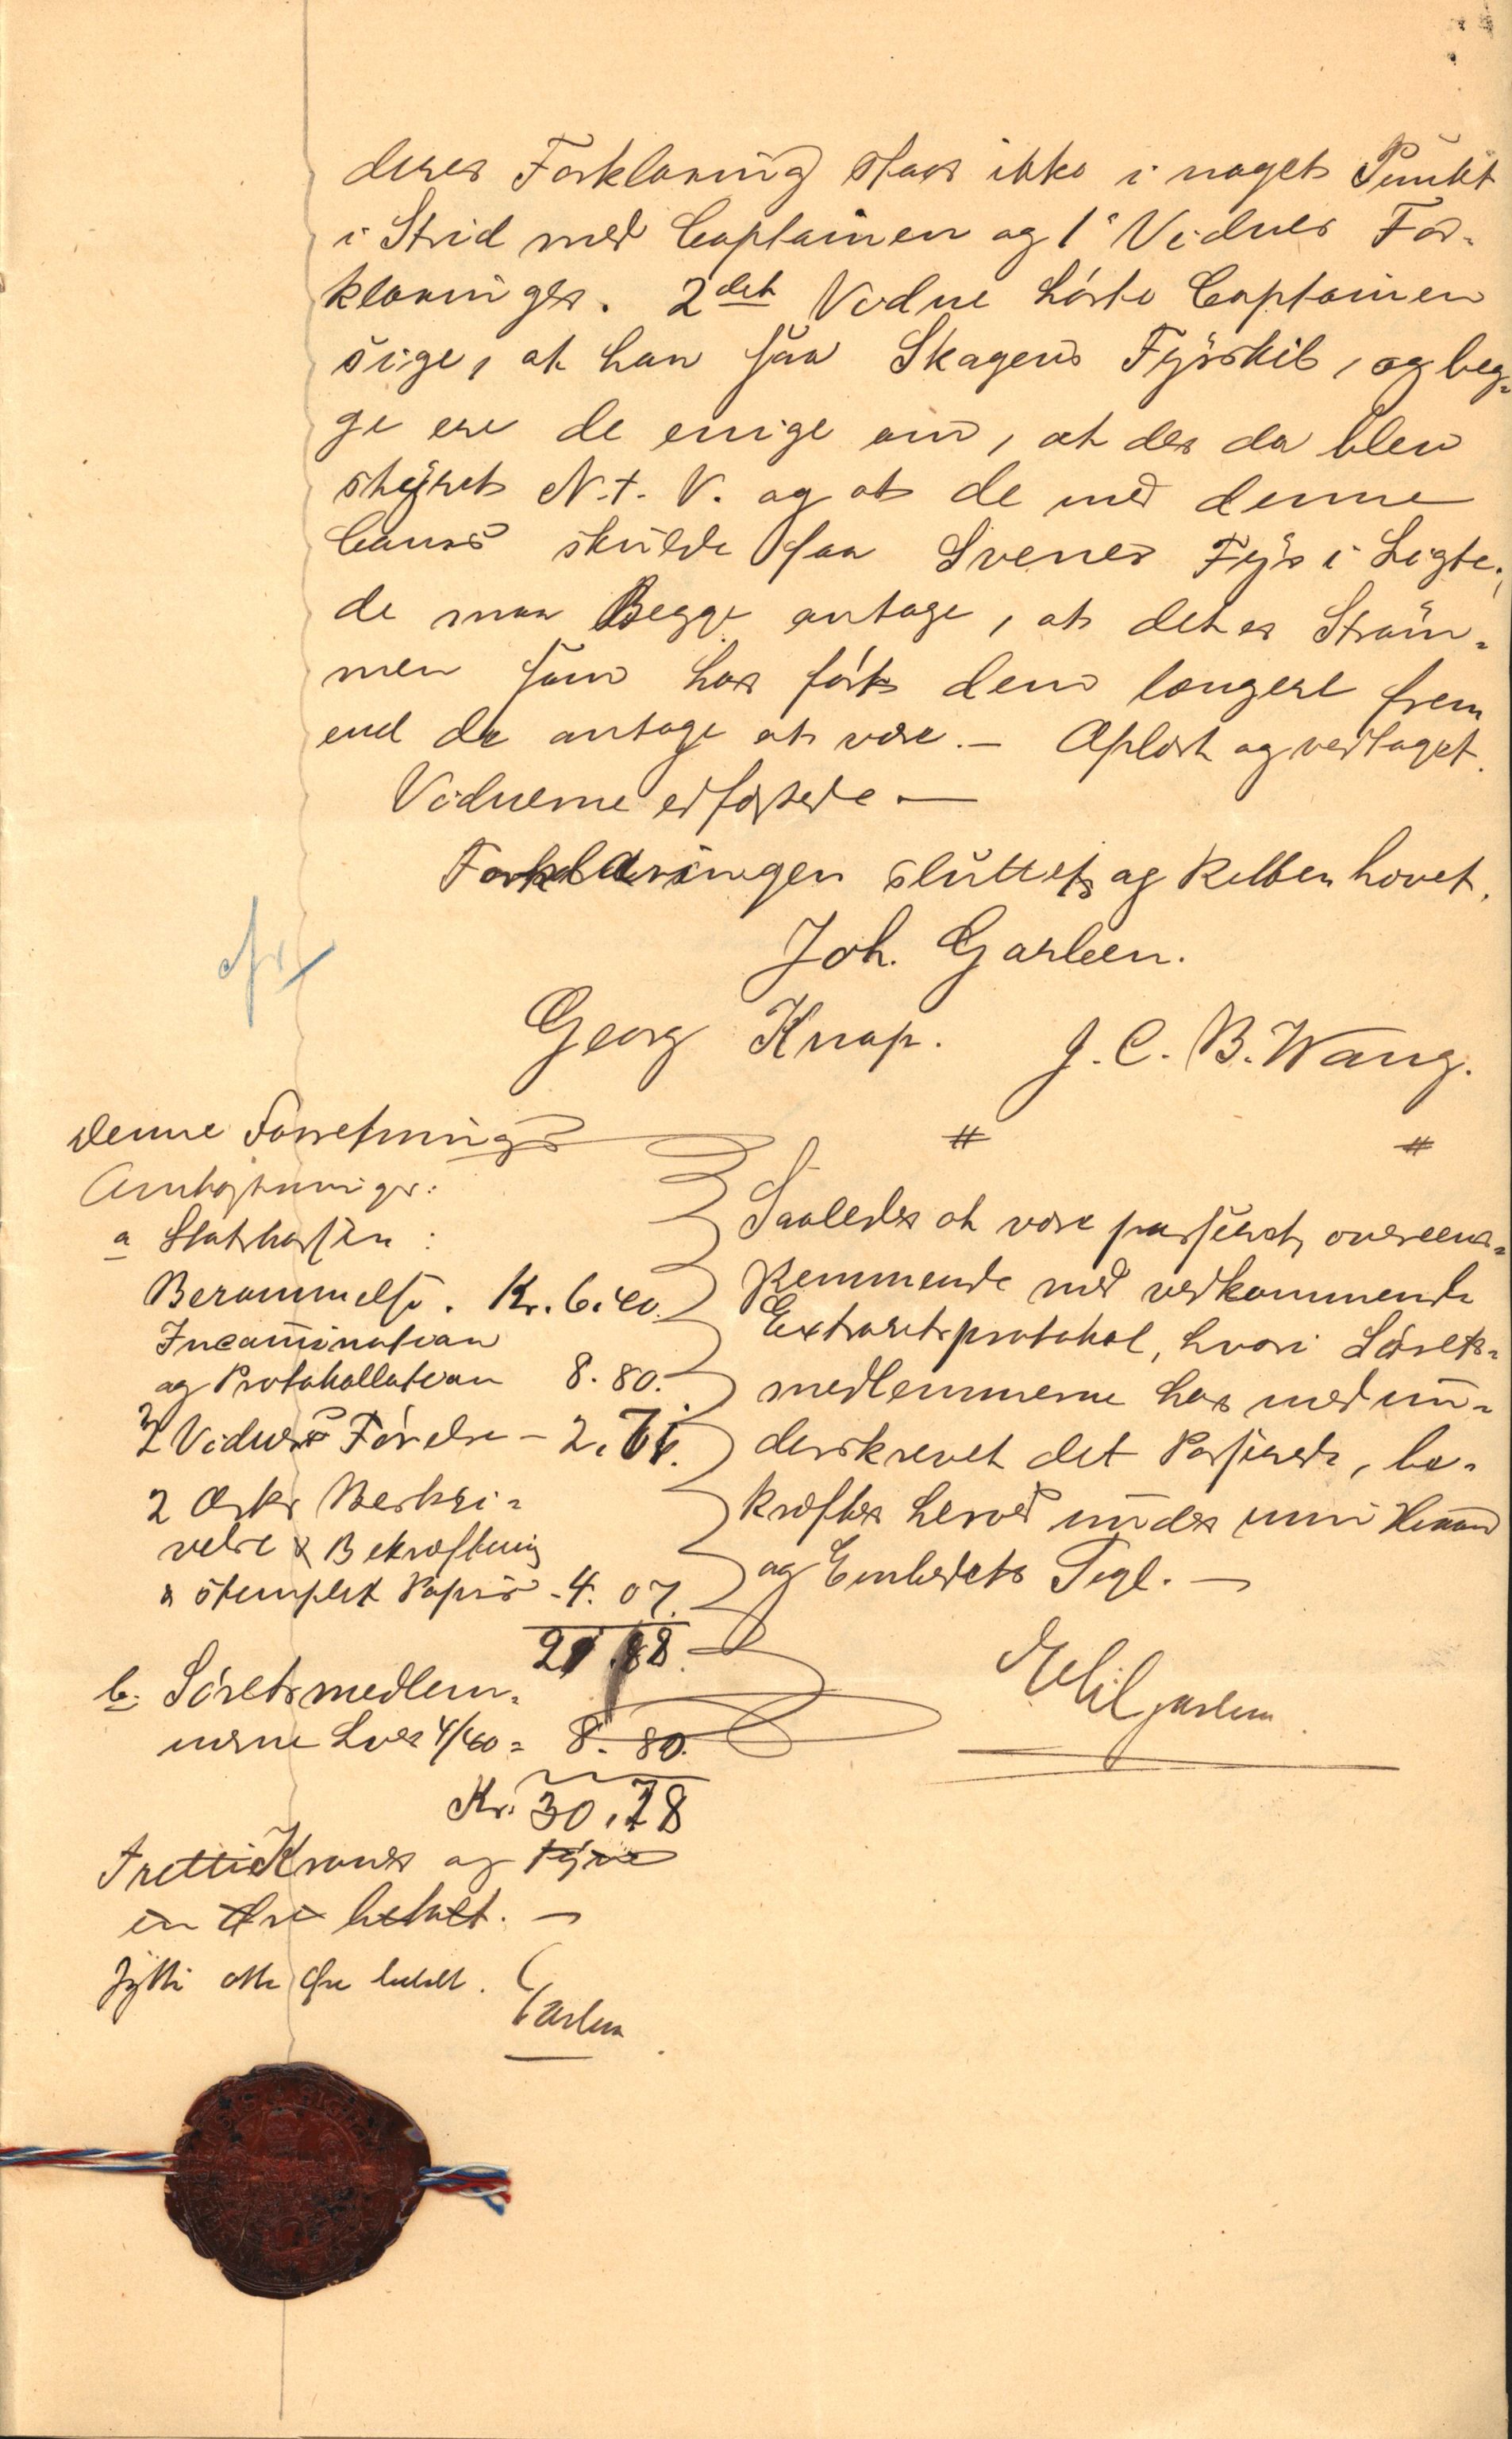 deres Forklaring staar ikke i noget Punkt
i Strid med Captainen og 1' Vidnes For-
klaringer. 2det Vidne hørte Captainen
sige, at han saa Skagens Fyrskib, og beg-
ge ere de enige om, at der da blev
styret N.t.V. og at de med denne
Cours skulde faa Svenes Fyr i Sigte;
de maa Begge antage, at det er Strøm-
men som har ført dem længere frem
end de antage at være.— Oplæst og vedtaget.
Vidnerne edfæstede —
Forklaringen sluttet og Retten hævet.
Joh. Garben.
Georg Knap. J. C. B. Wang.
Denne Forretnings
Omkostninger:
a Statskassen:
Berammelse. Kr. 6.40.
Incamination
og Protokollation 8. 80.
2 Vidners Førelse - 2.
2 Arks Beskri-
velse & Bekræftning
& stemplet Papir - 4. 07.
21.
b. Søretsmedlem-
merne hver 4/40 = 8. 80.
Kr. 30.78
Tretti Kroner og tyve
en Øre betalt. —
sytti otte Øre betalt.
Garben
# #
Saaledes at være passeret, overeens-
stemmende med vedkommende
Extraretsprotokol, hvori Sørets-
medlemmerne har med un-
derskrevet det Passerede, be-
kræftes herved under min Haand
og Embedets Segl. —